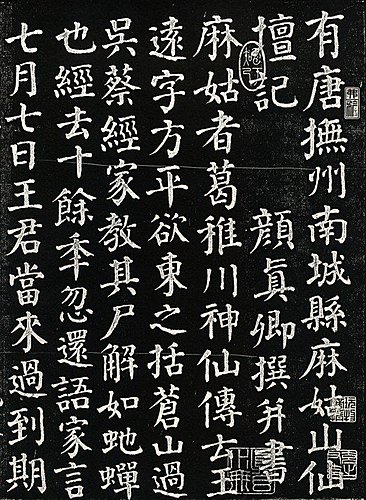 有唐撫州南城縣麻姑山仙
壇記 顏真卿撰并書
麻姑者葛稚川神仙傳云王
遠字方平欲東之括蒼山過
吳蔡經家教其尸解如虵蟬
也經去十餘年忽還語家言
七月七日王君當來過到期